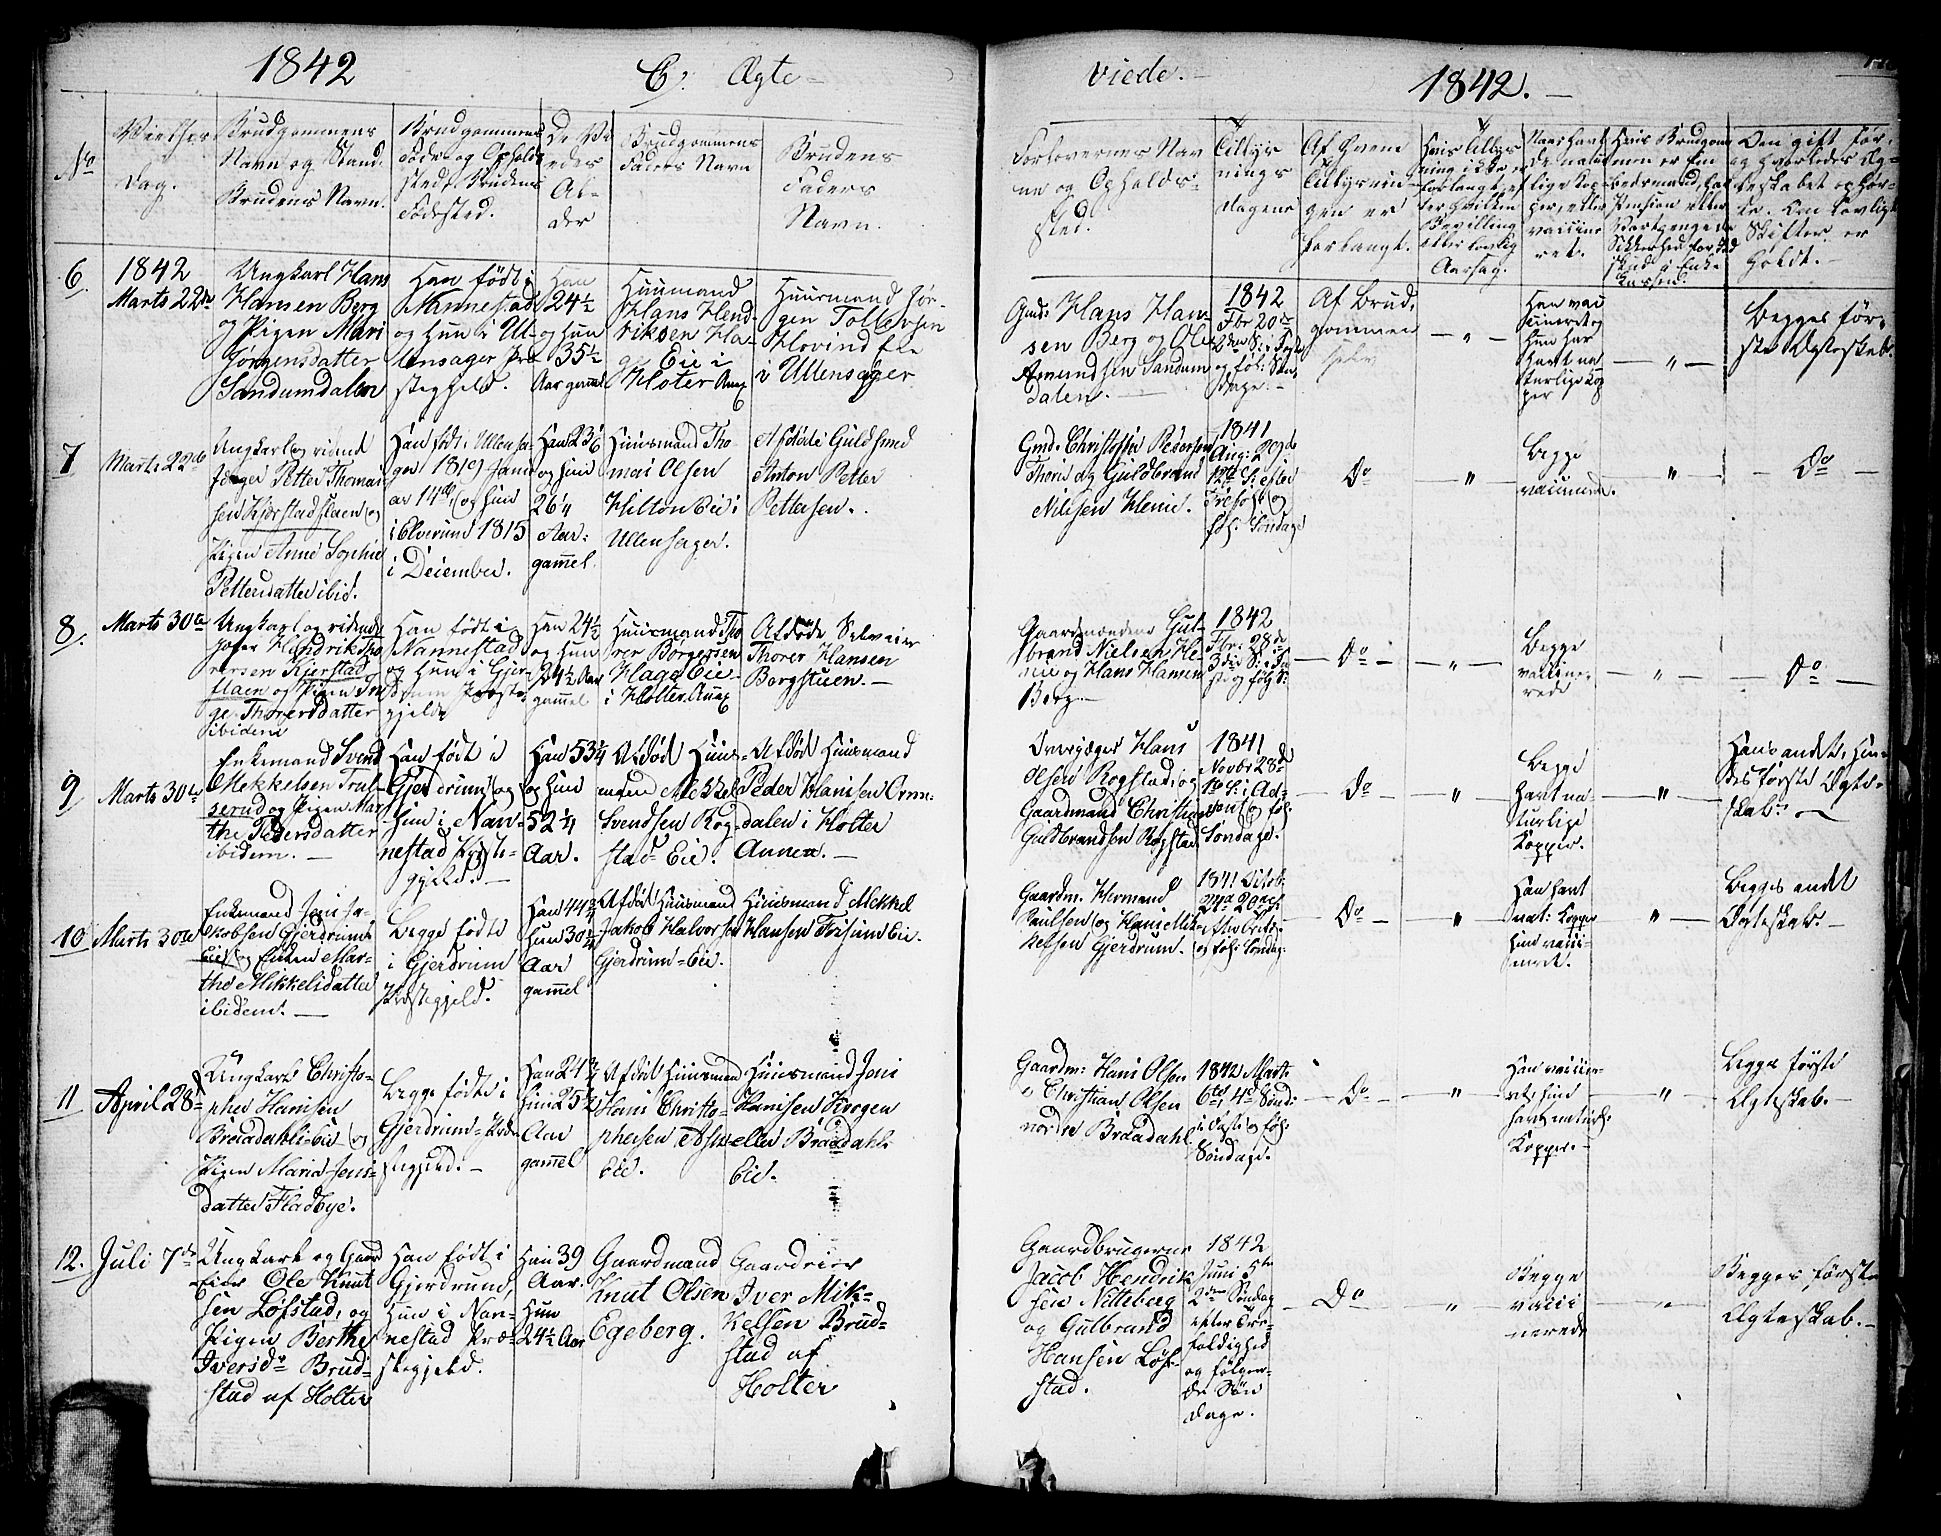 1842
C. Ægte
viede.
1842.
No
Vielses
dag.
Brudgommens
Navn og Stand.
Brudens Navn.
Brudgommens
Føde og Opholds
sted, Brudens
Fødested.
De Vi
edes
Al-
der
Brudgommens
Faders Navn
Brudens
Faders
Navn.
Forlovernes Nav
ne og Opholds-
sted.
Tillys
nings
dagene
Af hvem
Tillysnin
gen er
forlangt.
Hvis Tillys
ning ikke er
forlangt, ef
ter hvilken
Bevilling
eller lovlig
Aarsag.
Naar havt
de natur
lige Kop-
per, eller
vaccine
ret.
Hvis Brudgom
men er Em
bedsmand, hat
Pension eller
Sikkerhed for Ind
skud i Enke
kassen.
Om gift før,
og hvorledes Æg-
teskabet ophør-
te. Om lovligt
Skifte er
holdt.
6.
1842
Marts 22de
Ungkarl Hans
Hansen Berg
og Pigen Mari
Jørgensdatter
Sandumdalen
Han født i
Nannestad
og Hun i Ul-
lensager Præ
stegjeld.
Han
24½
og hun
35½
Aar gamel
Huusmand
Hans Hend-
riksen Ha-
ge Eie i
Holter Anex
Huusmand Jør-
gen Tollevsen
Hovind Eie
i Ullensager
Gmd: Hans Han-
sen Berg og Ole
Amundsen Sandum
dalen.
1842
Fbr 20de
2den S: i Faste
og føl: Søn
dage.
Af Brud,
gommen
selv
"
Han vac
cineret og
Hun har
havt na
turlige Kop
per
"
Begges før-
ste Ægteskab.
7
Marts 22de
Ungkarl og ridende
Jæger Petter Thomas
sen Kjørstadflaen og
Pigen Anne Sophie
Pettersdatter ibid.
Han fød i Ullensa-
ger 1819 Janu
ar 14de, og Hun
i Elverum 1815
i December.
Han 23 1/6
og Hun
26¼
Aar
gamel.
Huusmand Tho
mas Olsen
Hilton Eie i
Ullensager.
Afdøde Guldsmed
Anton Petter
Pettersen.
Gmd: Christopher Pedersen
Thoris og Guldbrand
Nilssen Henie.
1841
Aug: 29de
12te S: efter
Trefol: og
føl: Søndage
Do
"
Begge
vaccinerede.
"
Do
8.
Marts 30te
Ungkarl og ridende
Jæger Hendrik Tho
rersen Kjørstad
flaen og Pigen In
ge Thorersdatter
ibidem
Han født i
Nannestad
og Hun i Gjer
drum Præste
gjeld.
Han 24½
og hun
24½ Aar
gamel
Huusmand Tho
rer Borgersen
Hage Eie
i Holter Anex
Afdøde Selveier
Thorer Hansen
Borgstuen.
Gaardmændene Gul-
brand Nielsen He-
nie og Hans Hansen
Berg.
1842
Fbr: 28de
3die S: i Fa
ste og følg: S:
Do
"
Begge
vaccine-
rede
"
Do
9
Marts 30te
Enkemand Svend
Mekkelsen Trul-
serud og Pigen Mar
the Pedersdatter
ibidem.
Han født i
Gjerdrum og
Hun i Nan-
nestad Præste-
gjeld.
Han 53¼
og Hun
52¼
Aar.
Afdød Huus-
mand Mekkel
Svendsen Rog-
stad-Eie.
Afdød Huusmand
Peder Hansen Orm-
dalen i Holter
Annex.
Overjæger Hans
Olsen Rogstad, og
Gaardmand Christian
Guldbrandsen Rogstad.
1841
Novbr 28de
1te S: i Ad-
vent og føl:
Søndage.
Do
"
Begge
havt na-
turlige
Kopper.
"
Hans andet, Hun-
des første Ægte-
skab.
10
Marts 30te
Enkemand Jens Ja-
kobsen Gjerdrums
Eie, og Enken Mar-
the Mikkelsdatter
ibidem.
Begge fødte
i Gjerdrum
Præstegjeld.
Han 44¾
Hun 30¼
Aar
gamel
Afdød Huusmand
Jakob Halvorsen
Gjerdrum-Eie.
Huusmand Mekkel
Hansen Frisum Eie.
Gaardm. Hermand
Paulsen og Hans Mik-
kelsen Gjerdrum.
1841 Octob
og føl: Søndag.
Do
"
Han havt
nat: Kopper
Hun vacci-
neret.
"
Begges andet
Ægteskab.
11
April 28de
Ungkarl Christo-
pher Hansen
Braadahls-Eie og
Pigen Maria Jens-
datter Fladbye.
Begge fødte i
Gjerdrum-Præ
stegjeld.
Han 24½
Hun 25½
Aar
gamel
Afdød Huusmand
Hans Christo-
phersen Asm-
Eie.
Huusmand Jens
Hansen Krogen
eller Braadahl
Eie.
Gaardm: Hans Olsen
o Christian Olsen
nordre Braadahl.
1842 Marts
6te, 4de Sønd:
i Faste og føl:
Søndage.
Do
"
Han vaccine-
ret, hun
havt naturl:
Kopper.
"
Begge første
Ægteskab.
12.
Juli 7de
Ungkarl og Gaard
Eier Ole Knut
sen Løfstad, og
Pigen Berthe
Iversdr Brud-
stad af Holter
Han født i
Gjerdrum,
Hun i Nan-
nestad Præ-
stegjeld.
Han 39
Aar.
Hun
24½ Aar
Gaardmand
Knut Olsen
Egeberg.
Gaardeier
Iver Mik-
kelsen Brud-
stad af
Holter
Gaardbrugerne
Jacob Hendrik
sen Nitteberg
og Gulbrand
Hansen Løf-
stad.
1842
Juni 5te
2den Søndag
efter Tre-
foldighed
og følgen-
de Søn
dage.
Do
"
Begge
vacci
nerede
"
Begges første
Ægteskab.